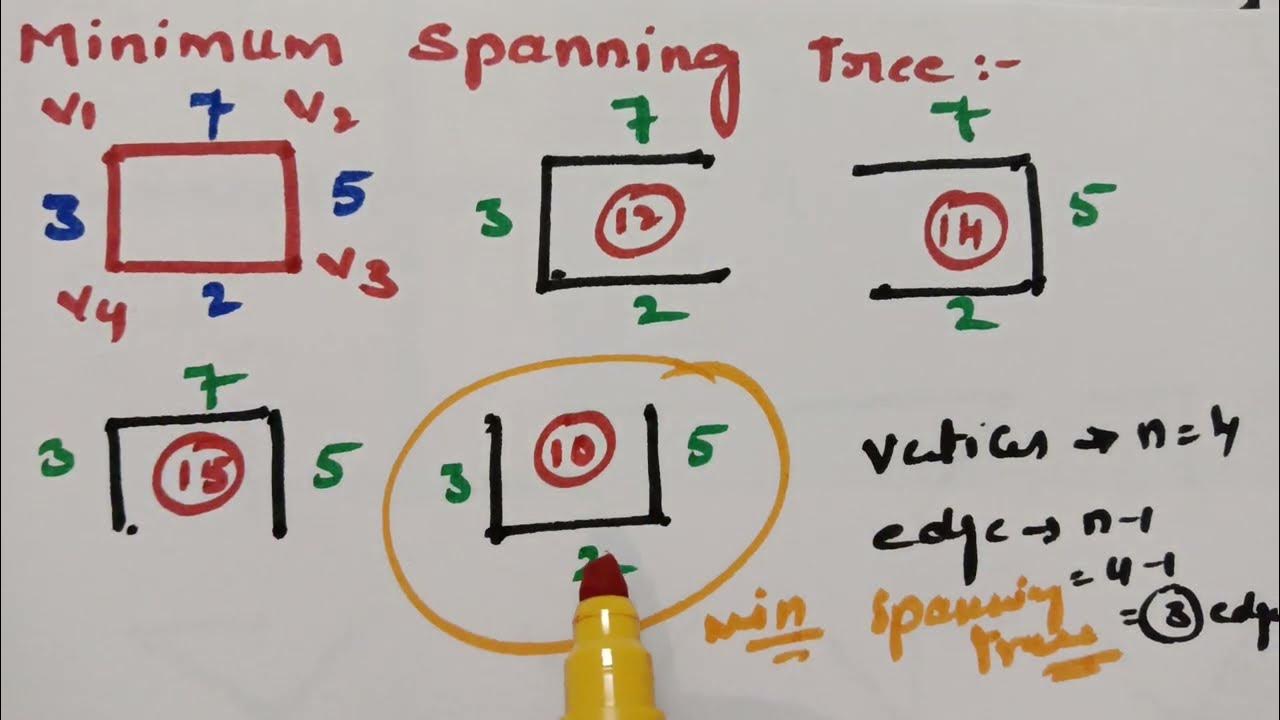 Minimum Spanning Tree :-
V1 7 V2
3 5
V4 2 V3
7
3 12
2
7
14 5
2
7
3 15 5
10
3 5
2
vertices → n = 4
edge → n-1
= 4-1
= 3 edge
min spanning
Tree